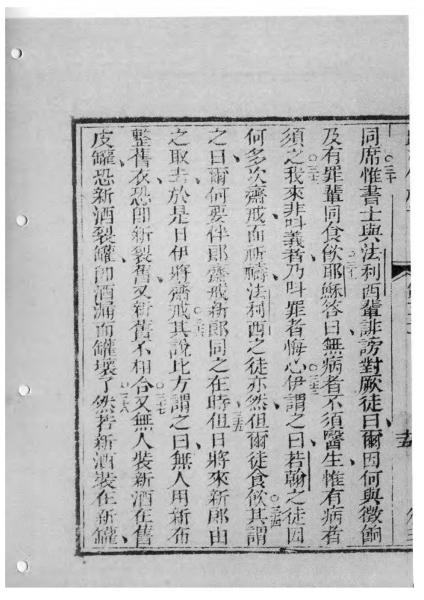 同席惟書士與法利西輩誹謗對厥徒曰爾因何與徵餉
及有罪輩同食飲耶穌答曰無病者不須醫生惟有病者
須之我來非呌義者乃呌罪者悔心伊謂之曰若翰之徒因
何多次齋戒而祈禱法利西之徒亦然但爾徒食飲其謂
之曰爾何要伴郎齋戒新郎同之在時但日將來新郎由
之取去於是日伊將齋戒其說比方謂之曰無人用新布
整舊衣恐即新裂舊又新舊不相合又無人裝新酒在舊
皮罐恐新酒裂罐即酒漏而罐壞了然若新酒裝在新罐